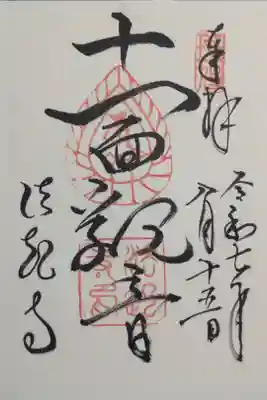 奉拝
令和七年
八月十五日
十一面観音
法起寺